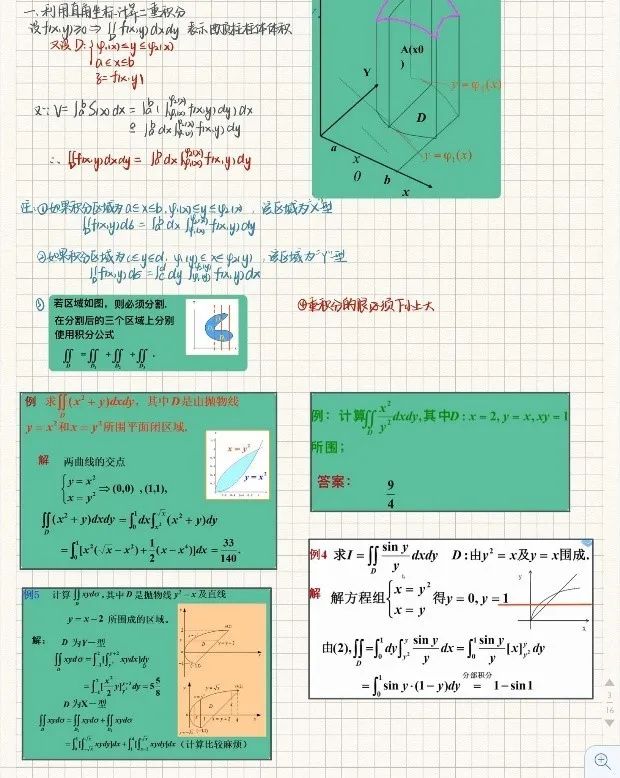 一、利用直角坐标计算二重积分
设f(x,y)≥0⇒∬_D f(x,y)dxdy 表示曲顶柱体体积
又设D:{φ₁(x)≤y≤φ₂(x)
a≤x≤b
z=f(x,y)
又∵V=∫_a^b S(x)dx=∫_a^b(∫_{φ₁(x)}^{φ₂(x)}f(x,y)dy)dx
=∫_a^b dx∫_{φ₁(x)}^{φ₂(x)}f(x,y)dy
∴∬_D f(x,y)dxdy=∫_a^b dx∫_{φ₁(x)}^{φ₂(x)}f(x,y)dy
A(x0
)
Y
y=φ₂(x)
D
a
x
0
b
x
y=φ₁(x)
注:①如果积分区域为a≤x≤b,φ₁(x)≤y≤φ₂(x),该区域为"X"型
∬_D f(x,y)dσ=∫_a^b dx∫_{φ₁(x)}^{φ₂(x)}f(x,y)dy
②如果积分区域为c≤y≤d,φ₁(y)≤x≤φ₂(y),该区域为"Y"型
∬_D f(x,y)dσ=∫_c^d dy∫_{φ₁(y)}^{φ₂(y)}f(x,y)dx
③
若区域如图,则必须分割.
在分割后的三个区域上分别
使用积分公式
∬_D=∬_{D₁}+∬_{D₂}+∬_{D₃}.
④重积分的限必须下小上大
例 求∬_D(x²+y)dxdy,其中D是由抛物线
y=x²和x=y²所围平面闭区域.
解 两曲线的交点
{y=x²
x=y² ⇒(0,0),(1,1),
x=y²
y=x²
∬_D(x²+y)dxdy=∫_0^1dx∫_{x²}^{√x}(x²+y)dy
=∫_0^1[x²(√x−x²)+1/2(x−x⁴)]dx=33/140.
例: 计算∬_D x²/y² dxdy,其中D:x=2,y=x,xy=1
所围;
答案:
9/4
例4 求I=∬_D sin y/y dxdy D:由y²=x及y=x围成.
解 解方程组{x=y²
x=y 得y=0,y=1
y
x
由(2),∬_D=∫_0^1dy∫_{y²}^y sin y/y dx=∫_0^1 sin y/y [x]_{y²}^y dy
=∫_0^1 sin y·(1−y)dy 分部积分= 1−sin1
例5 计算∬_D xydσ,其中D是抛物线y²=x及直线
y=x−2所围成的区域.
解: D为Y—型
∬_D xydσ=∫_{-1}^2[∫_{y²}^{y+2}xydx]dy
=∫_{-1}^2[x²/2 y]_{y²}^{y+2}dy=5 5/8
D为X—型
∬_D xydσ=∬_{D₁}xydσ+∬_{D₂}xydσ
=∫_0^1[∫_{-√x}^{√x}xydy]dx+∫_1^4[∫_{x-2}^{√x}xydy]dx (计算比较麻烦)
3
16